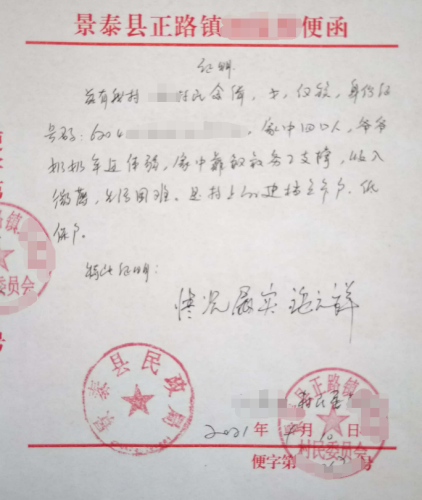 景泰县正路镇 便函
证明
兹有我村 民余伟，女，汉族，身份证
号码：6204 ，家中四口人，爷爷
奶奶年迈体弱，家中靠叔叔务工支撑，收入
微薄，生活困难。是村上的建档立卡户、低
保户。
特此证明：
情况属实
景泰县民政局
正路镇
村民委员会
2021年 月10日
便字第 号
镇
委员会
号